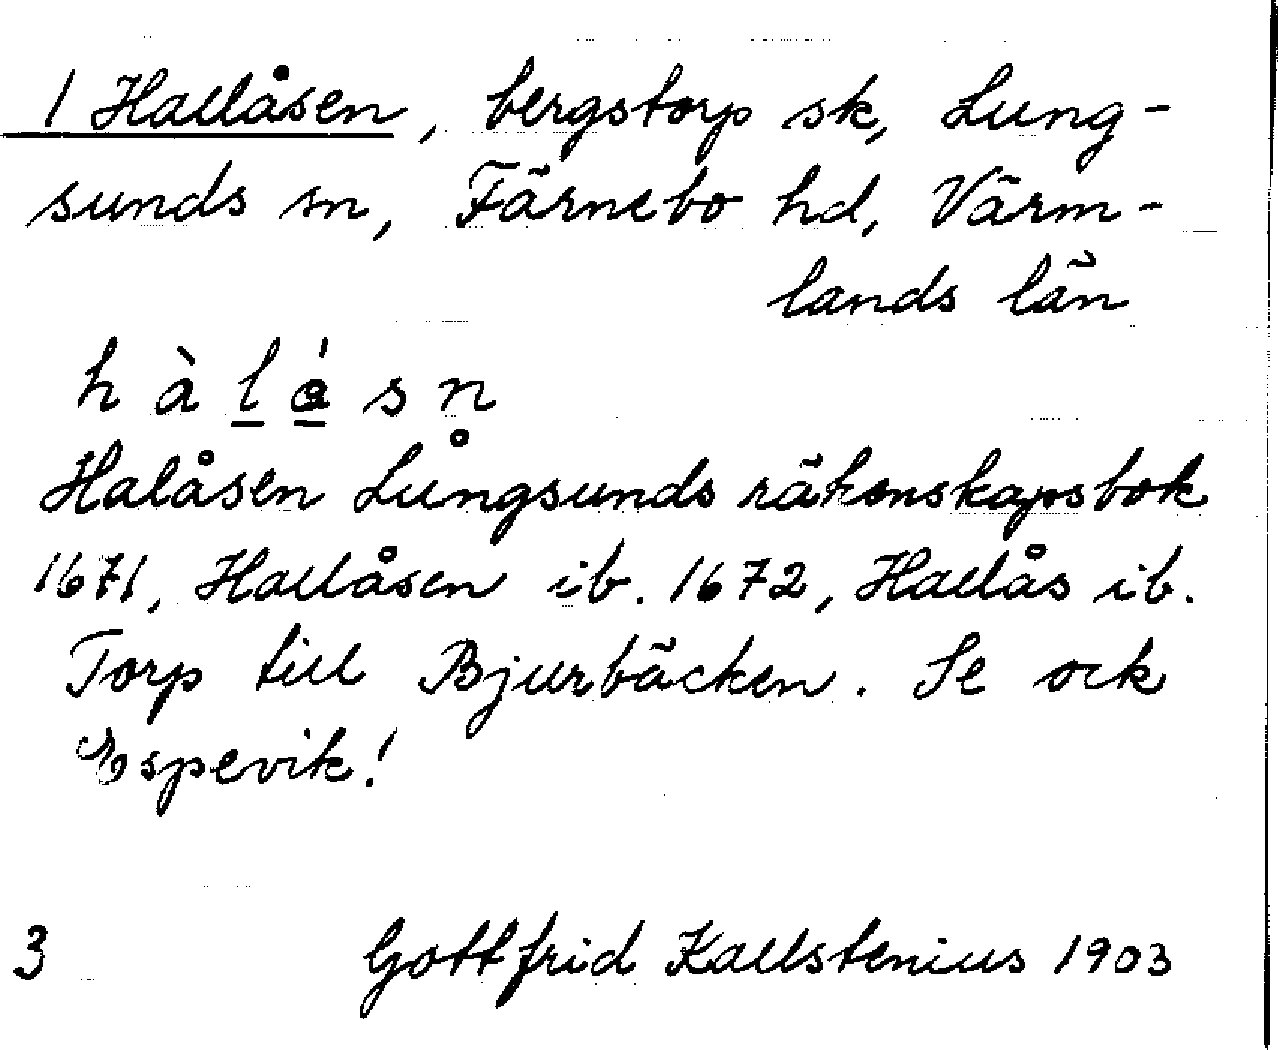 1 Hallåsen, bergstorp sk, Lung-
sunds sn, Färnebo hd, Värm-
lands län
h à l ǻ s n̥
Halåsen Lungsunds räkenskapsbok
1671, Hallåsen ib. 1672, Hallås ib.
Torp till Bjurbäcken. Se ock
Espevik!
3 Gottfrid Kallstenius 1903